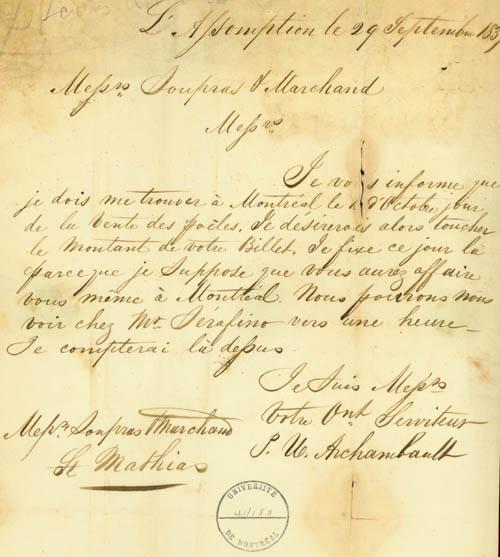 L'Assomption le 29 Septembre 183
Messrs Soupras & Marchand
Messrs
Je vous informe que
je dois me trouver à Montréal le 1 d'Octobre, jour
de la Vente des poëles. Je désirerais alors toucher
le Montant de votre Billet. Je fixe ce jour là
parceque je Suppose que vous aurez affaire
vous même à Montréal. Nous pourrons nous
voir chez Mr. Sérafino vers une heure_
Je compterai là dessus
Je Suis Messrs
Votre Ont Serviteur
P. U. Archambault
Messrs Soupras & Marchand
St Mathias
UNIVERSITÉ
DE MONTRÉAL